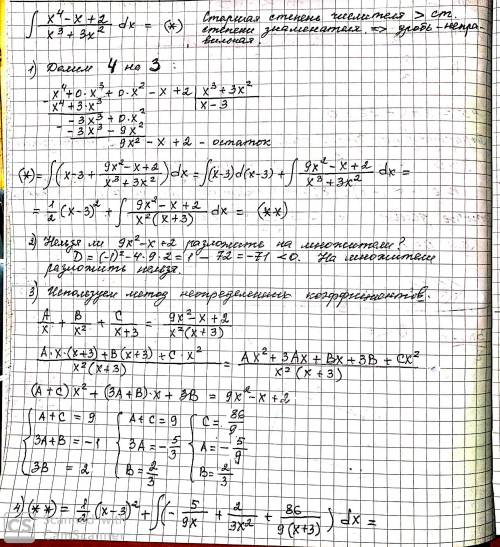 ∫ (x⁴-x+2)/(x³+3x²) dx = (*) Старшая степень числителя > ст.
степени знаменателя => дробь-непра-
вильная.
1) Делим 4 на 3 :
x⁴+0·x³+0·x²-x+2 | x³+3x²
x⁴+3·x³ | x-3
-3x³+0·x²
-3x³-9x²
9x²-x+2 - остаток
(*)=∫(x-3+(9x²-x+2)/(x³+3x²))dx=∫(x-3)d(x-3)+∫(9x²-x+2)/(x³+3x²) dx=
=1/2 (x-3)²+∫(9x²-x+2)/(x²(x+3)) dx= (**)
2) Нельзя ли 9x²-x+2 разложить на множители?
D=(-1)²-4·9·2=1-72=-71<0. На множители
разложить нельзя.
3) Используем метод неопределенных коэффициентов.
A/x + B/x² + C/(x+3) = (9x²-x+2)/(x²(x+3))
(A·x·(x+3)+B(x+3)+C·x²)/(x²(x+3)) = (Ax²+3Ax+Bx+3B+Cx²)/(x²(x+3))
(A+C)x²+(3A+B)·x+3B=9x²-x+2
{ A+C=9 { A+C=9 { C=86/9
{ 3A+B=-1 { 3A=-5/3 { A=-5/9
{ 3B=2 { B=2/3 { B=2/3
4) (**)=1/2 (x-3)²+∫(-5/(9x)+2/(3x²)+86/(9(x+3))) dx=
CS Scanned with
CamScanner